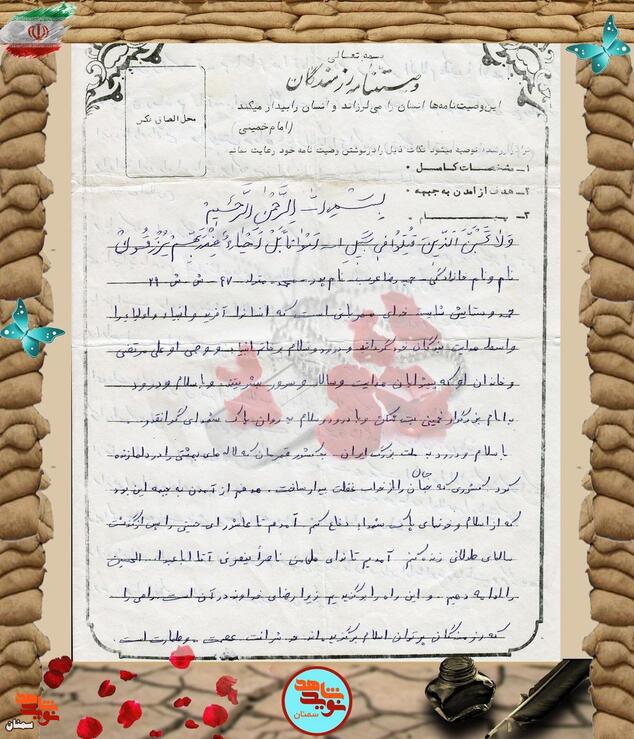 بسمه تعالی
وصیتنامه رزمندگان
این وصیت نامه‌ها انسان را می‌لرزاند و انسان را بیدار میکند
(امام خمینی)
محل الصاق عکس
توصیه میشود نکات ذیل را در نوشتن وصیت نامه خود رعایت نمائید
۱ـ مشخصات کامل ـ
۲ـ هدف از آمدن به جبهه ـ
۳ـ پیام ـ
بسم الله الرحمن الرحیم
ولا تحسبن الذین قتلوا فی سبیل الله امواتا بل احیاء عند ربهم یرزقون
نام و نام خانوادگی نام پدر متولد ۴۷ ش ش ۲۹
حمد و ستایش شایسته خدای مهربانی است که انسان را آفرید و انبیاء و اولیا را
واسطه هدایت بندگان خود گردانید و درود و سلام بر خاتم انبیاء و وصی او علی مرتضی
و خاندان او که پیشوایان هدایت و سالار و سرور بشریتند و با سلام و درود
به امام بزرگوار خمینی بت شکن و با درود و سلام به روان پاک شهدای گرانقدر
با سلام و درود به ملت بزرگ ایران کشور قهرمان که لاله های بهشتی را در دامان زنده
کرد کشوری که جهان را از خواب غفلت بیدار ساخت هدفم از آمدن به جبهه این بود
که از اسلام و خونهای پاک شهداء دفاع کنم آمدم تا عاشورای حسینی را پس از گذشت
سالهای طولانی زنده کنم آمدیم تا ندای هل من ناصراً ینصرنی آقا اباعبدالله الحسین
را ادامه دهیم و این راه را برگزیدیم زیرا رضای خداوند در آن است راهی را
که رزمندگان پرتوان اسلام برگزیده‌اند و شرافت عصمت و طهارت است
نوید شاهد
سمنان
نوید شاهد
سمنان